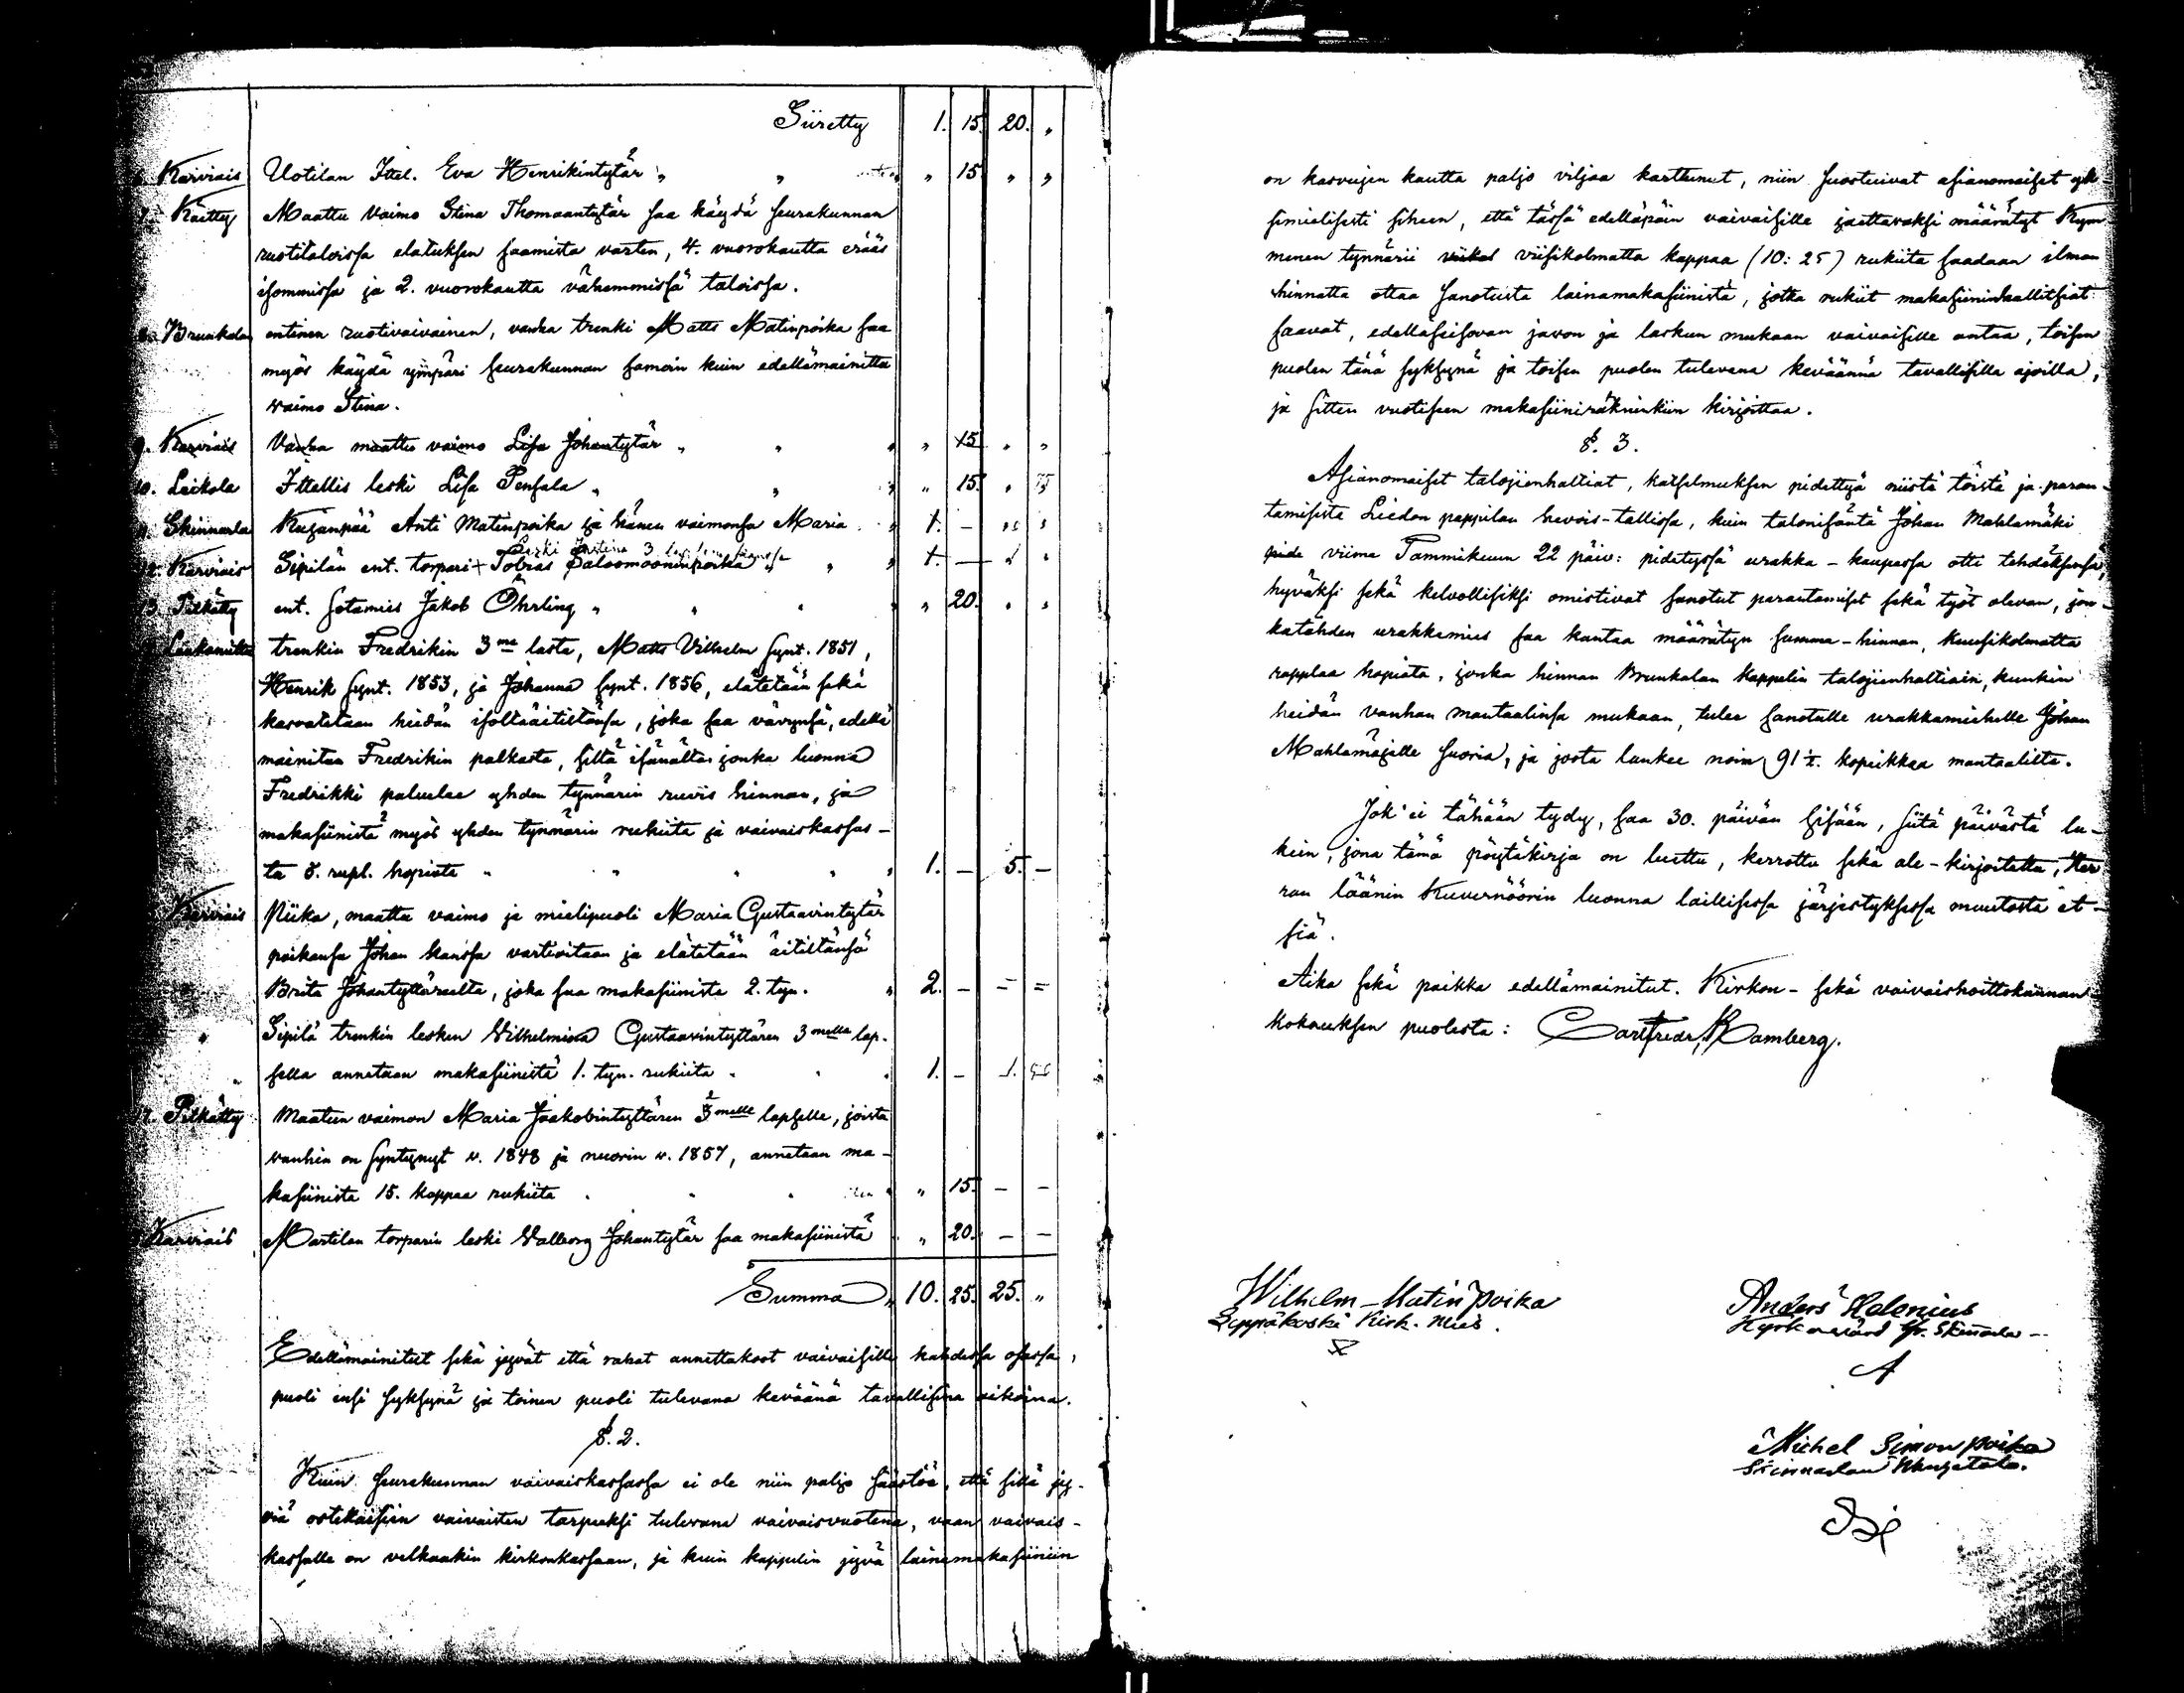 Siiretty 1. 15. 20. "
6. Karviais Uotilan Ittel. Eva Henrikintytär " " " 15. " "
7. Käitty Maattu vaimo Stina Thomaantytär saa käydä seurakunnan
ruotitaloissa elatuksen saamista varten, 4. vuorokautta erääs
isommissa ja 2. vuorokautta vähemmissä taloissa.
8. Brunkala entinen ruotivaivainen, vanha trenki Matts Matinpoika saa
myös käydä ympäri seurakunnan samoin kuin edellämainittu
vaimo Stina.
9. Karviais Vanha maattu vaimo Lisa Johantytär " " " " 15 " "
10. Leikola Ittellis leski Lisa Pensala " " " " 15. " 75
11. Skinnarla Kujanpää Anti Matinpoika ja hänen vaimonsa Maria " 1. — " "
Leski 3
12. Karviais Sipilän ent. torpari + Tobias Saloomooninpoika " " " 1. — "
13. Pelkätty ent. sotamies Jakob Öhrling " " " " 20. " "
Liukanitta trenkin Fredrikin 3me lasta, Matts Vilhelm synt. 1851,
Henrik synt. 1853, ja Johanna synt. 1856, elätetään sekä
kasvatetaan heidän isoltaäitiltänsä, joka saa vävynsä, edellä
mainitun Fredrikin palkasta, siltä isänältä jonka luonna
Fredrikki palvelee yhden tynnärin ruvis hinnan, ja
makasiinistä myös yhden tynnärin rukiita ja vaivaiskassas-
ta 5. rupl. hopiata " " " " " 1. — 5. —
Karviais Piika, maattu vaimo ja mielipuoli Maria Gustaavintytär
poikansa Johan kanssa vartioitaan ja elätetään äitiltänsä
Brita Johantyttäreelta, joka saa makasiinista 2. tyn. " 2. — — =
" Sipilä trenkin lesken Vilhelmina Gustaavintyttären 3mella lap-
sella annetaan makasiinistä 1. tyn. rukiita " " " 1. — 1.
17. Pelkätty Maatun vaimon Maria Jaakobintyttären 3melle lapselle, joista
vanhin on syntynyt v. 1848 ja nuorin v. 1857, annetaan ma-
kasiinista 15. kappaa rukiita " " " " " 15. — —
Karviais Martilan torparin leski Valborg Johantytär saa makasiinistä " 20. — —
Summa " 10. 25. 25. "
Edellämainitut sekä jyvät että rahat annettakoot vaivaisille kahdessa osassa,
puoli ensi syksynä ja toinen puoli tulevana keväänä tavallisina aikoina.
§. 2.
Kuin seurakunnan vaivaiskassassa ei ole niin paljo säästöä, että sillä jy-
viä ostettaisiin vaivaisten tarpeeksi tulevana vaivaisvuotena, vaan vaivais-
kassalle on velkaakin kirkonkassaan, ja kuin kappelin jyvä lainamakasiiniin
on kasvujen kautta paljo viljaa karttunut, niin suostuivat asianomaiset yk-
simielisesti siheen, että tässä edelläpäin vaivaisille jaettavaksi määrätyt Kym-
menen tynnärii viisikolmatta kappaa (10: 25) rukiita saadaan ilman
hinnatta ottaa sanotuista lainamakasiinistä, jotka rukiit makasiininhallitsiat
saavat, edelläseisovan javon ja laskun mukaan vaivaisille antaa, toisen
puolen tänä syksynä ja toisen puolen tulevana keväännä tavallisilla ajoilla,
ja sitten vuotiseen makasiiniräkninkiin kirjoittaa.
§. 3.
Asianomaiset talojienhaltiat, katselmuksen pidettyä niistä töistä ja paran-
tamisista Liedon pappilan hevois-tallissa, kuin talonisäntä Johan Mahlamäki
pide viime Tammikuun 22 päiv: pidetyssä urakka-kaupassa otti tehdäksensä,
hyväksi sekä kelvollisiksi omistivat sanotut parantamiset sekä työt olevan, jon-
katähden urakkamies saa kantaa määrätyn summa-hinnan, kuusikolmatta
rupplaa hopiata, jonka hinnan Brunkalan kappelin talojienhaltiain, kunkin
heidän vanhan mantaalinsa mukaan, tulee sanotulle urakkamiehelle Johan
Mahlamäjelle suoria, ja josta lankee noin 91 ½. kopeikkaa mantaalilta.
Jok' ei tähään tydy, saa 30. päivän sisään, siitä päivästä lu-
kein, jona tämä pöytäkirja on luettu, kerrottu sekä ale-kirjoitettu, Her-
ran läänin Kuvernöörin luonna laillisessa järjestyksessä muutosta et-
siä.
Aika sekä paikka edellämainitut. Kirkon- sekä vaivaishoittokunnan
kokouksen puolesta: Carl Fredr. Bamberg.
Wilhelm Matin poika
Seppäkoski Kirk. Mies.
Anders Helenius
Kyrkovärd fr. Skinnarla
A
Michel Simon poika
Skinnarlan